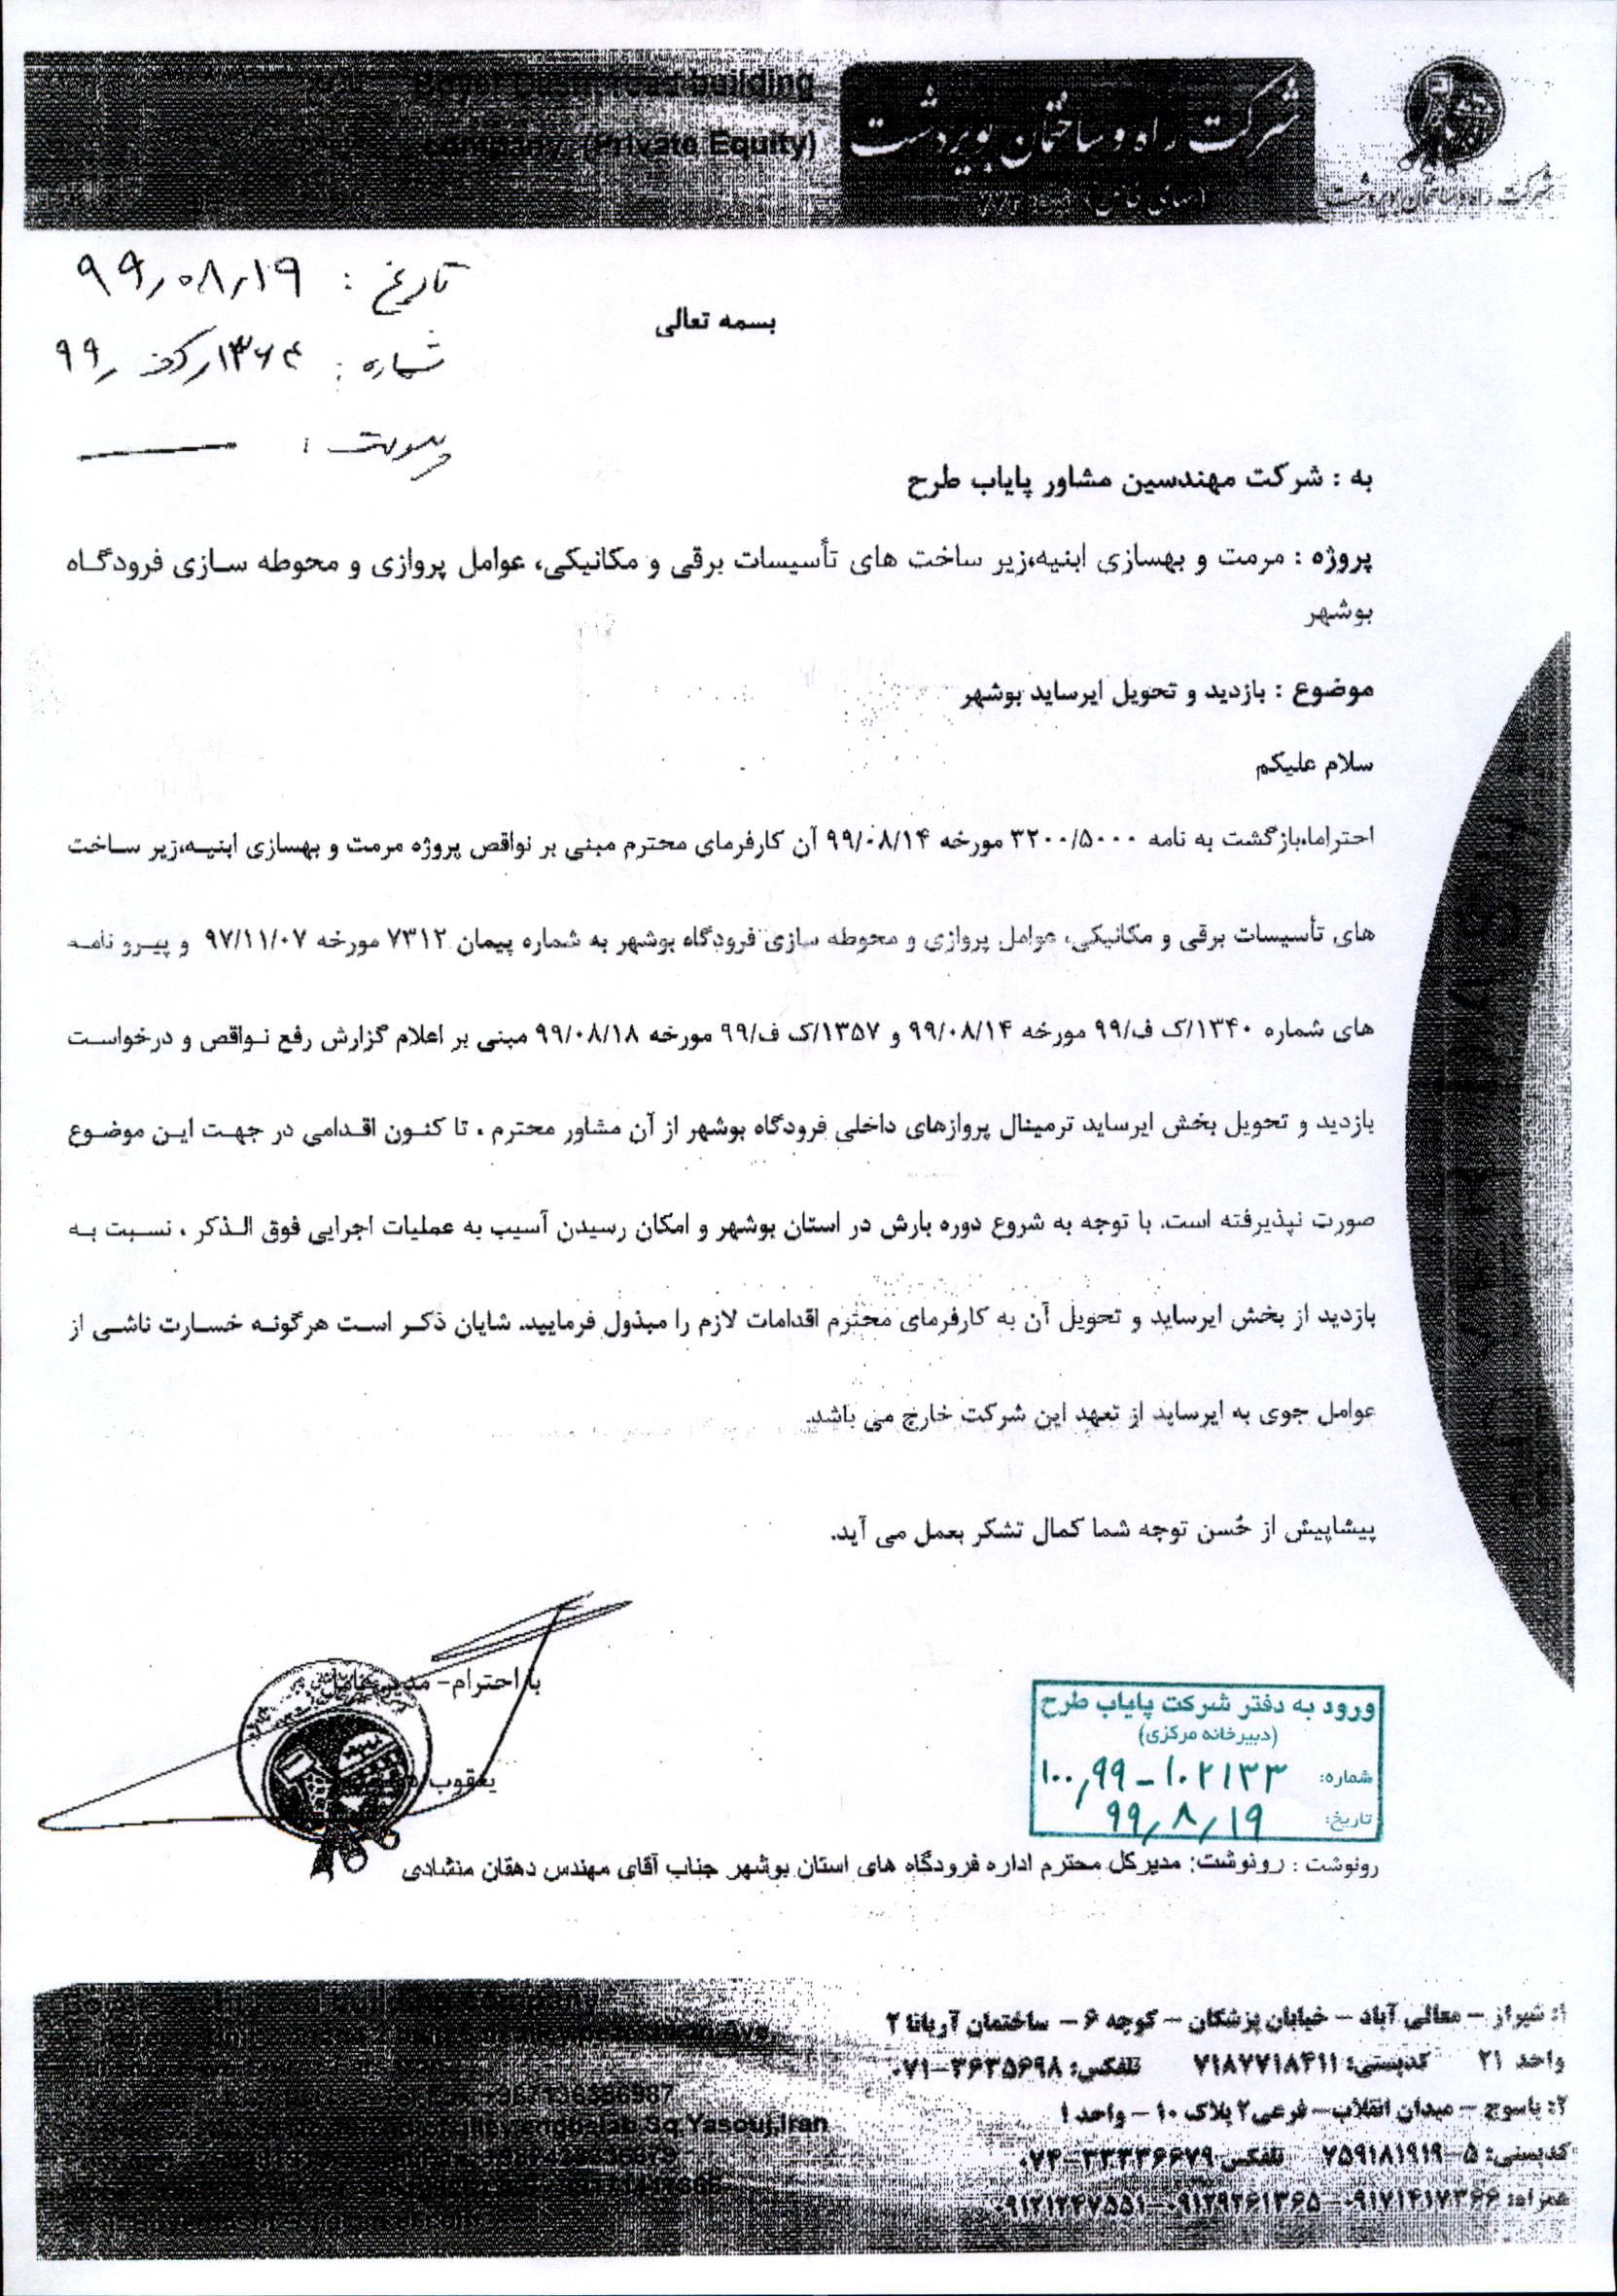 شرکت راه و ساختمان بویردشت
Boyer Dasht road building
company (Private Equity)
شرکت راه و ساختمان بویردشت
تاریخ : ۹۹٫۰۸٫۱۹
شماره : ۱۳۶۴٫ک ف٫۹۹
پیوست :
بسمه تعالی
به : شرکت مهندسین مشاور پایاب طرح
پروژه : مرمت و بهسازی ابنیه،زیر ساخت های تأسیسات برقی و مکانیکی، عوامل پروازی و محوطه سازی فرودگاه
بوشهر
موضوع : بازدید و تحویل ایرساید بوشهر
سلام علیکم
احتراما،بازگشت به نامه ۳۲۰۰/۵۰۰۰ مورخه ۹۹/۰۸/۱۴ آن کارفرمای محترم مبنی بر نواقص پروژه مرمت و بهسازی ابنیه،زیر ساخت
های تأسیسات برقی و مکانیکی، عوامل پروازی و محوطه سازی فرودگاه بوشهر به شماره پیمان ۷۳۱۲ مورخه ۹۷/۱۱/۰۷ و پیرو نامه
های شماره ۱۳۴۰/ک ف/۹۹ مورخه ۹۹/۰۸/۱۴ و ۱۳۵۷/ک ف/۹۹ مورخه ۹۹/۰۸/۱۸ مبنی بر اعلام گزارش رفع نواقص و درخواست
بازدید و تحویل بخش ایرساید ترمینال پروازهای داخلی فرودگاه بوشهر از آن مشاور محترم ، تا کنون اقدامی در جهت این موضوع
صورت نپذیرفته است. با توجه به شروع دوره بارش در استان بوشهر و امکان رسیدن آسیب به عملیات اجرایی فوق الذکر ، نسبت به
بازدید از بخش ایرساید و تحویل آن به کارفرمای محترم اقدامات لازم را مبذول فرمایید. شایان ذکر است هرگونه خسارت ناشی از
عوامل جوی به ایرساید از تعهد این شرکت خارج می باشد.
پیشاپیش از حُسن توجه شما کمال تشکر بعمل می آید.
با احترام- مدیر عامل
یعقوب
ورود به دفتر شرکت پایاب طرح
(دبیرخانه مرکزی)
شماره: ۱۰۰٫۹۹-۱۰۲۱۳۳
تاریخ: ۹۹٫۸٫۱۹
رونوشت : رونوشت: مدیرکل محترم اداره فرودگاه های استان بوشهر جناب آقای مهندس دهقان منشادی
۱: شیراز - معالی آباد - خیابان پزشکان - کوچه ۶ - ساختمان آریانا ۲
واحد ۲۱ کدپستی: ۷۱۸۷۷۱۸۴۱۱ تلفکس: ۳۶۳۵۶۹۸-۰۷۱
۲: یاسوج - میدان انقلاب- فرعی۲ پلاک ۱۰ - واحد ۱
کدپستی: ۵-۷۵۹۱۸۱۹۱۹ تلفکس ۳۳۳۳۶۶۷۹-۰۷۴
همراه: ۰۹۱۷۱۴۱۷۳۶۶-۰۹۱۲۹۲۶۱۳۶۵-۰۹۱۲۱۲۴۷۵۵۱
Sq.Yasouj,Iran